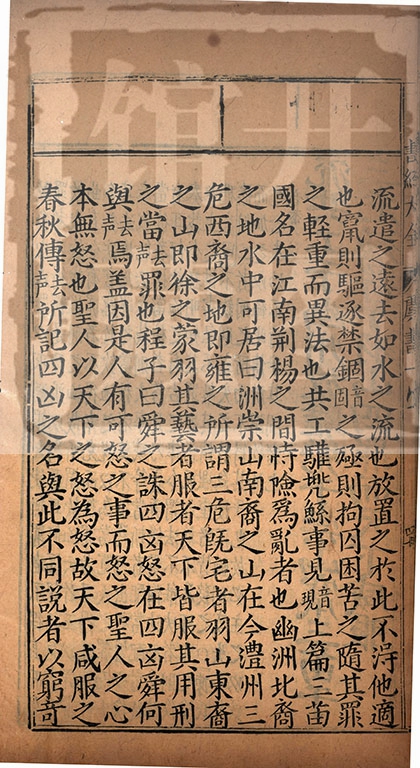 流遣之遠去如水之流也放置之於此不得他適
也竄則驅逐禁錮音固之殛則拘囚困苦之隨其罪
之輕重而異法也共工驩兠鯀事見音現上篇三苗
國名在江南荆楊之間恃險爲亂者也幽洲北裔
之地水中可居曰洲崇山南裔之山在今澧州三
危西裔之地即雍之所謂三危旣宅者羽山東裔
之山即徐之蒙羽其藝者服者天下皆服其用刑
之當去声罪也程子曰舜之誅四凶怒在四凶舜何
與去声焉盖因是人有可怒之事而怒之聖人之心
本無怒也聖人以天下之怒為怒故天下咸服之
春秋傳去声所記四凶之名與此不同説者以窮竒